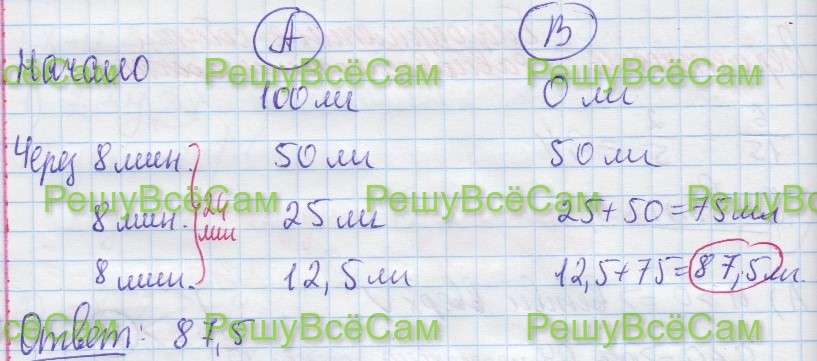 А В
Начало
РешуВсёСам РешуВсёСам
100 мл 0 мл
Через 8 мин. 50 мл 50 мл
РешуВсёСам РешуВсёСам РешуВ
8 мин. 24 мин 25 мл 25+50=75мл
8 мин. 12,5мл 12,5+75=87,5мл.
РешуВсёСам РешуВсёСам
Ответ: 87,5